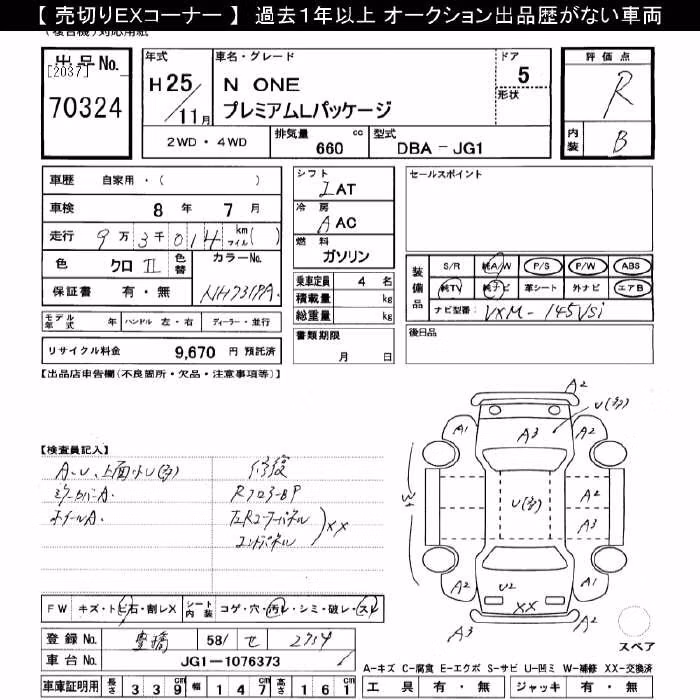 【 売切りEXコーナー 】 過去1年以上 オークション出品歴がない車両
(複合機)対応用紙
出品No.
[2037]
70324
年式
H25/11月
車名・グレード
N ONE
プレミアムLパッケージ
ドア
5
形状
2WD・4WD
排気量
660
cc
型式
DBA-JG1
評価点
R
内装
B
車歴 自家用・( )
車検 8年 7月
走行 9万3千014 km マイル( )
色 クロⅡ
色替
カラーNo.
NH731PA
保証書 有・無
シフト
IAT
冷房
AAC
燃料
ガソリン
乗車定員 4名
積載量 kg
総重量 kg
セールスポイント
装備品
S/R 純A/W P/S P/W ABS
純TV 純ナビ 革シート 外ナビ エアB
ナビ型番: VXM-145VSi
モデル年式 年 ハンドル 左・右 ディーラー・並行
書類期限
月 日
後日品
リサイクル料金 9,670 円 預託済
【出品店申告欄(不良箇所・欠品・注意事項等)】
【検査員記入】
A.U、上面小U(多)
ミラーカバーA.
ホイールA.
修復
左Rコーナーパネル
エンドパネル
XX
A2
U(多)
A1
A3
A2
U(多)
A2
A3
A2
U2
A2
XX
A3
A2
スペア
FW キズ・トビ石・割レX
シート内装 コゲ・穴・汚レ・シミ・破レ・スレ
登録No. 豊橋 581 せ 2754
車台No. JG1-1076373
車庫証明用 長さ 339 幅 147 高さ 161
A-キズ C-腐食 E-エクボ S-サビ U-凹ミ W-補修 XX-交換済
工具 有・無 ジャッキ 有・無